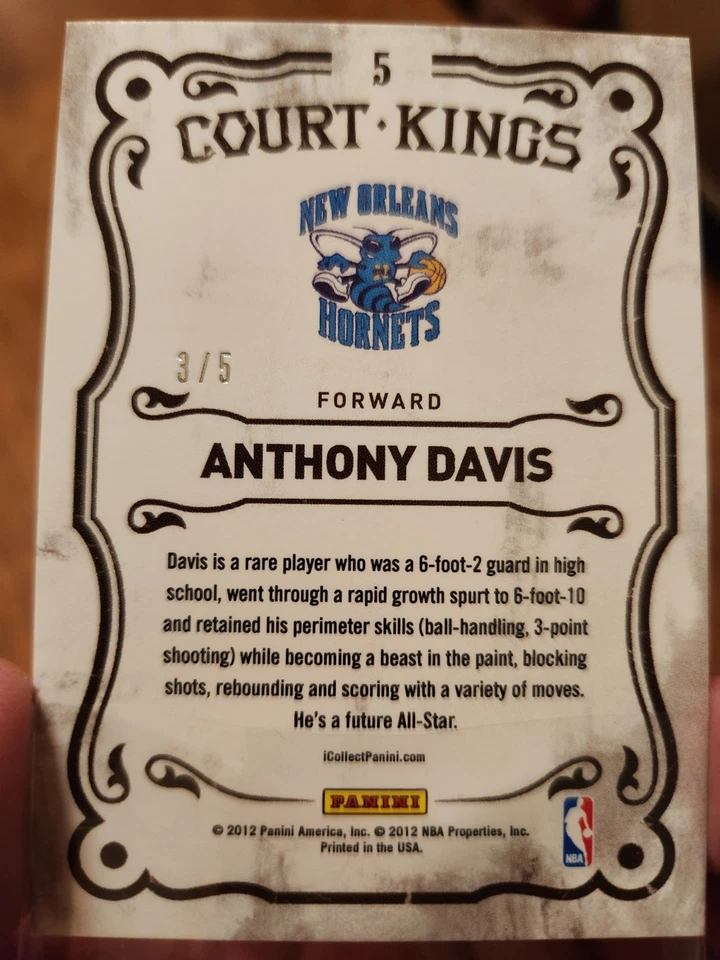 5
COURT · KINGS
NEW ORLEANS
HORNETS
3/5
FORWARD
ANTHONY DAVIS
Davis is a rare player who was a 6-foot-2 guard in high
school, went through a rapid growth spurt to 6-foot-10
and retained his perimeter skills (ball-handling, 3-point
shooting) while becoming a beast in the paint, blocking
shots, rebounding and scoring with a variety of moves.
He's a future All-Star.
iCollectPanini.com
PANINI
© 2012 Panini America, Inc. © 2012 NBA Properties, Inc.
Printed in the USA.
NBA